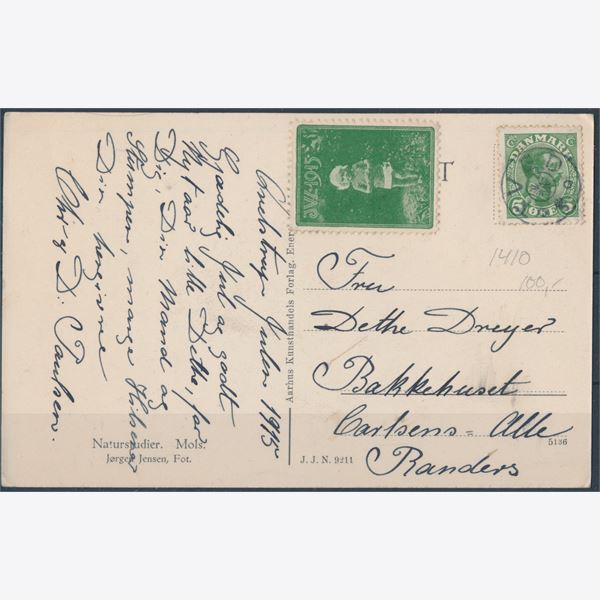 Julen 1915
Glædelig Jul og godt
Nytaar lille Dethe, for
Dig, Din Mand og
Stumpen, mange Hilsner
Din hengivne
D. Paulsen.
Naturstudier. Mols.
Jørgen Jensen, Fot.
Aarhus Kunsthandels Forlag. Eneret
J. J. N. 9211
JUL 1915
T
DANMARK
5 ØRE 5
1410
100,-
Fru
Dethe Dreyer
Bakkehuset
Carlsens=Alle
Randers
5136